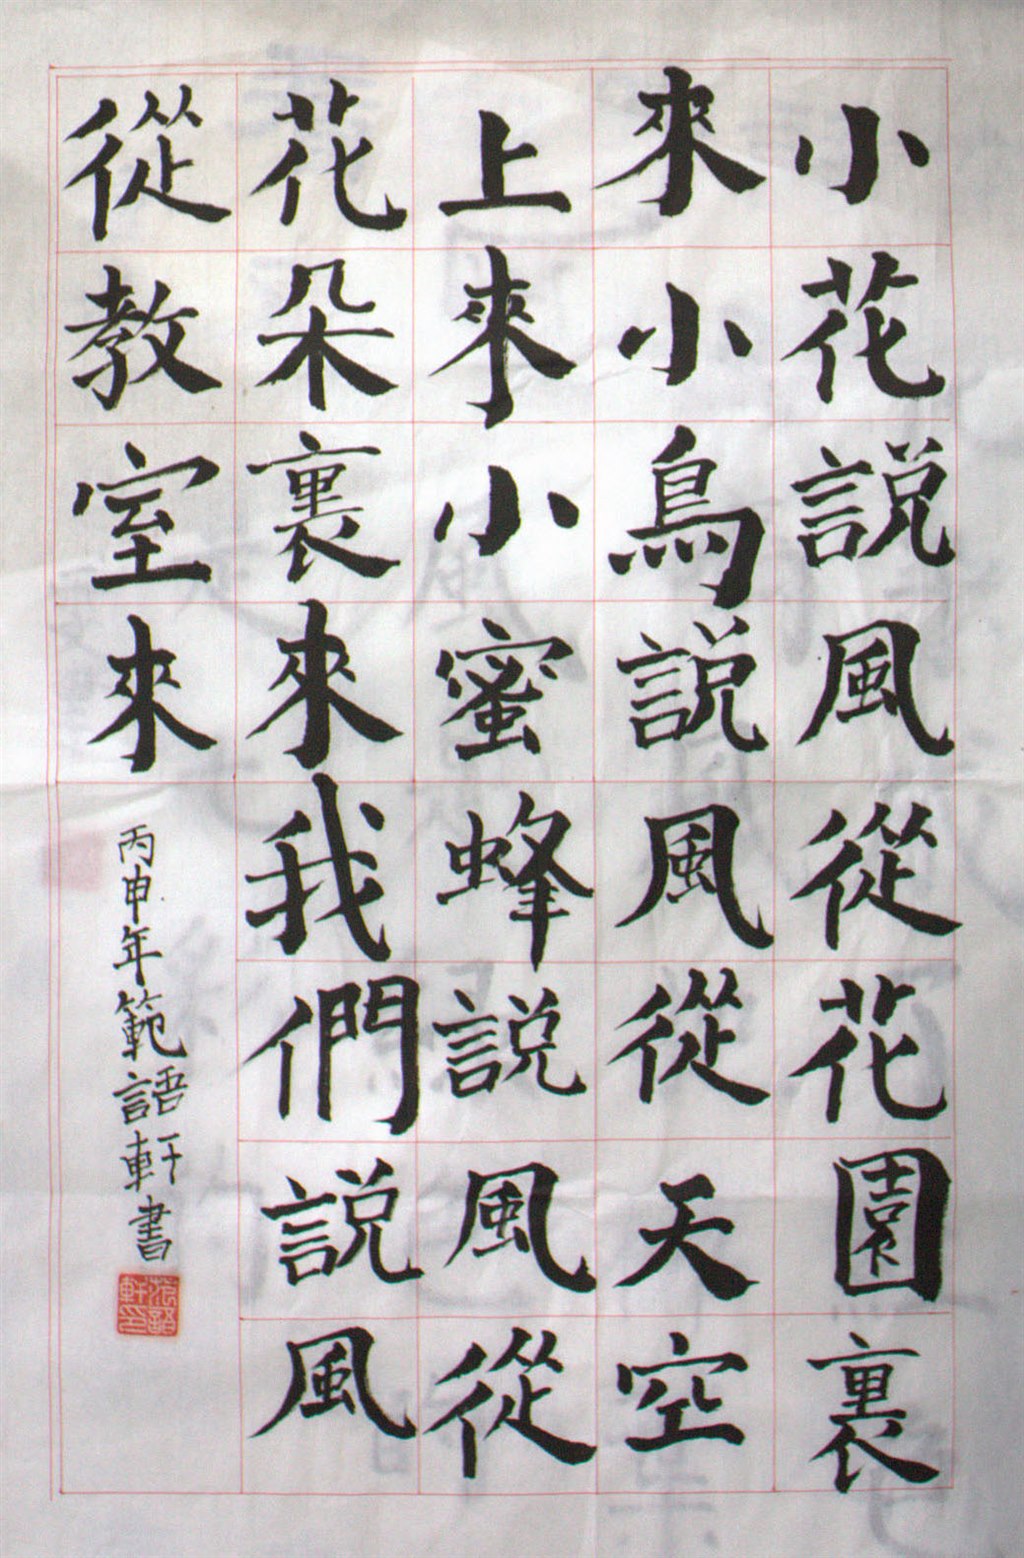 小花説風從花園裏
來小鳥説風從天空
上來小蜜蜂説風從
花朵裏來我們説風
從教室來
丙申年範語軒書
范語軒印